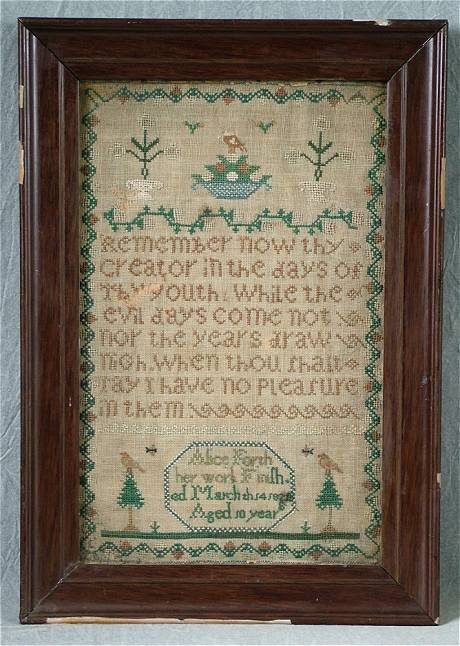 Remember now thy
creator in the days of
Thy youth. While the
evil days come not
nor the years draw
nigh. When thou shalt
say I have no Pleasure
in them
Alice Forth
her work Finish
ed March th 14
Aged 10 year